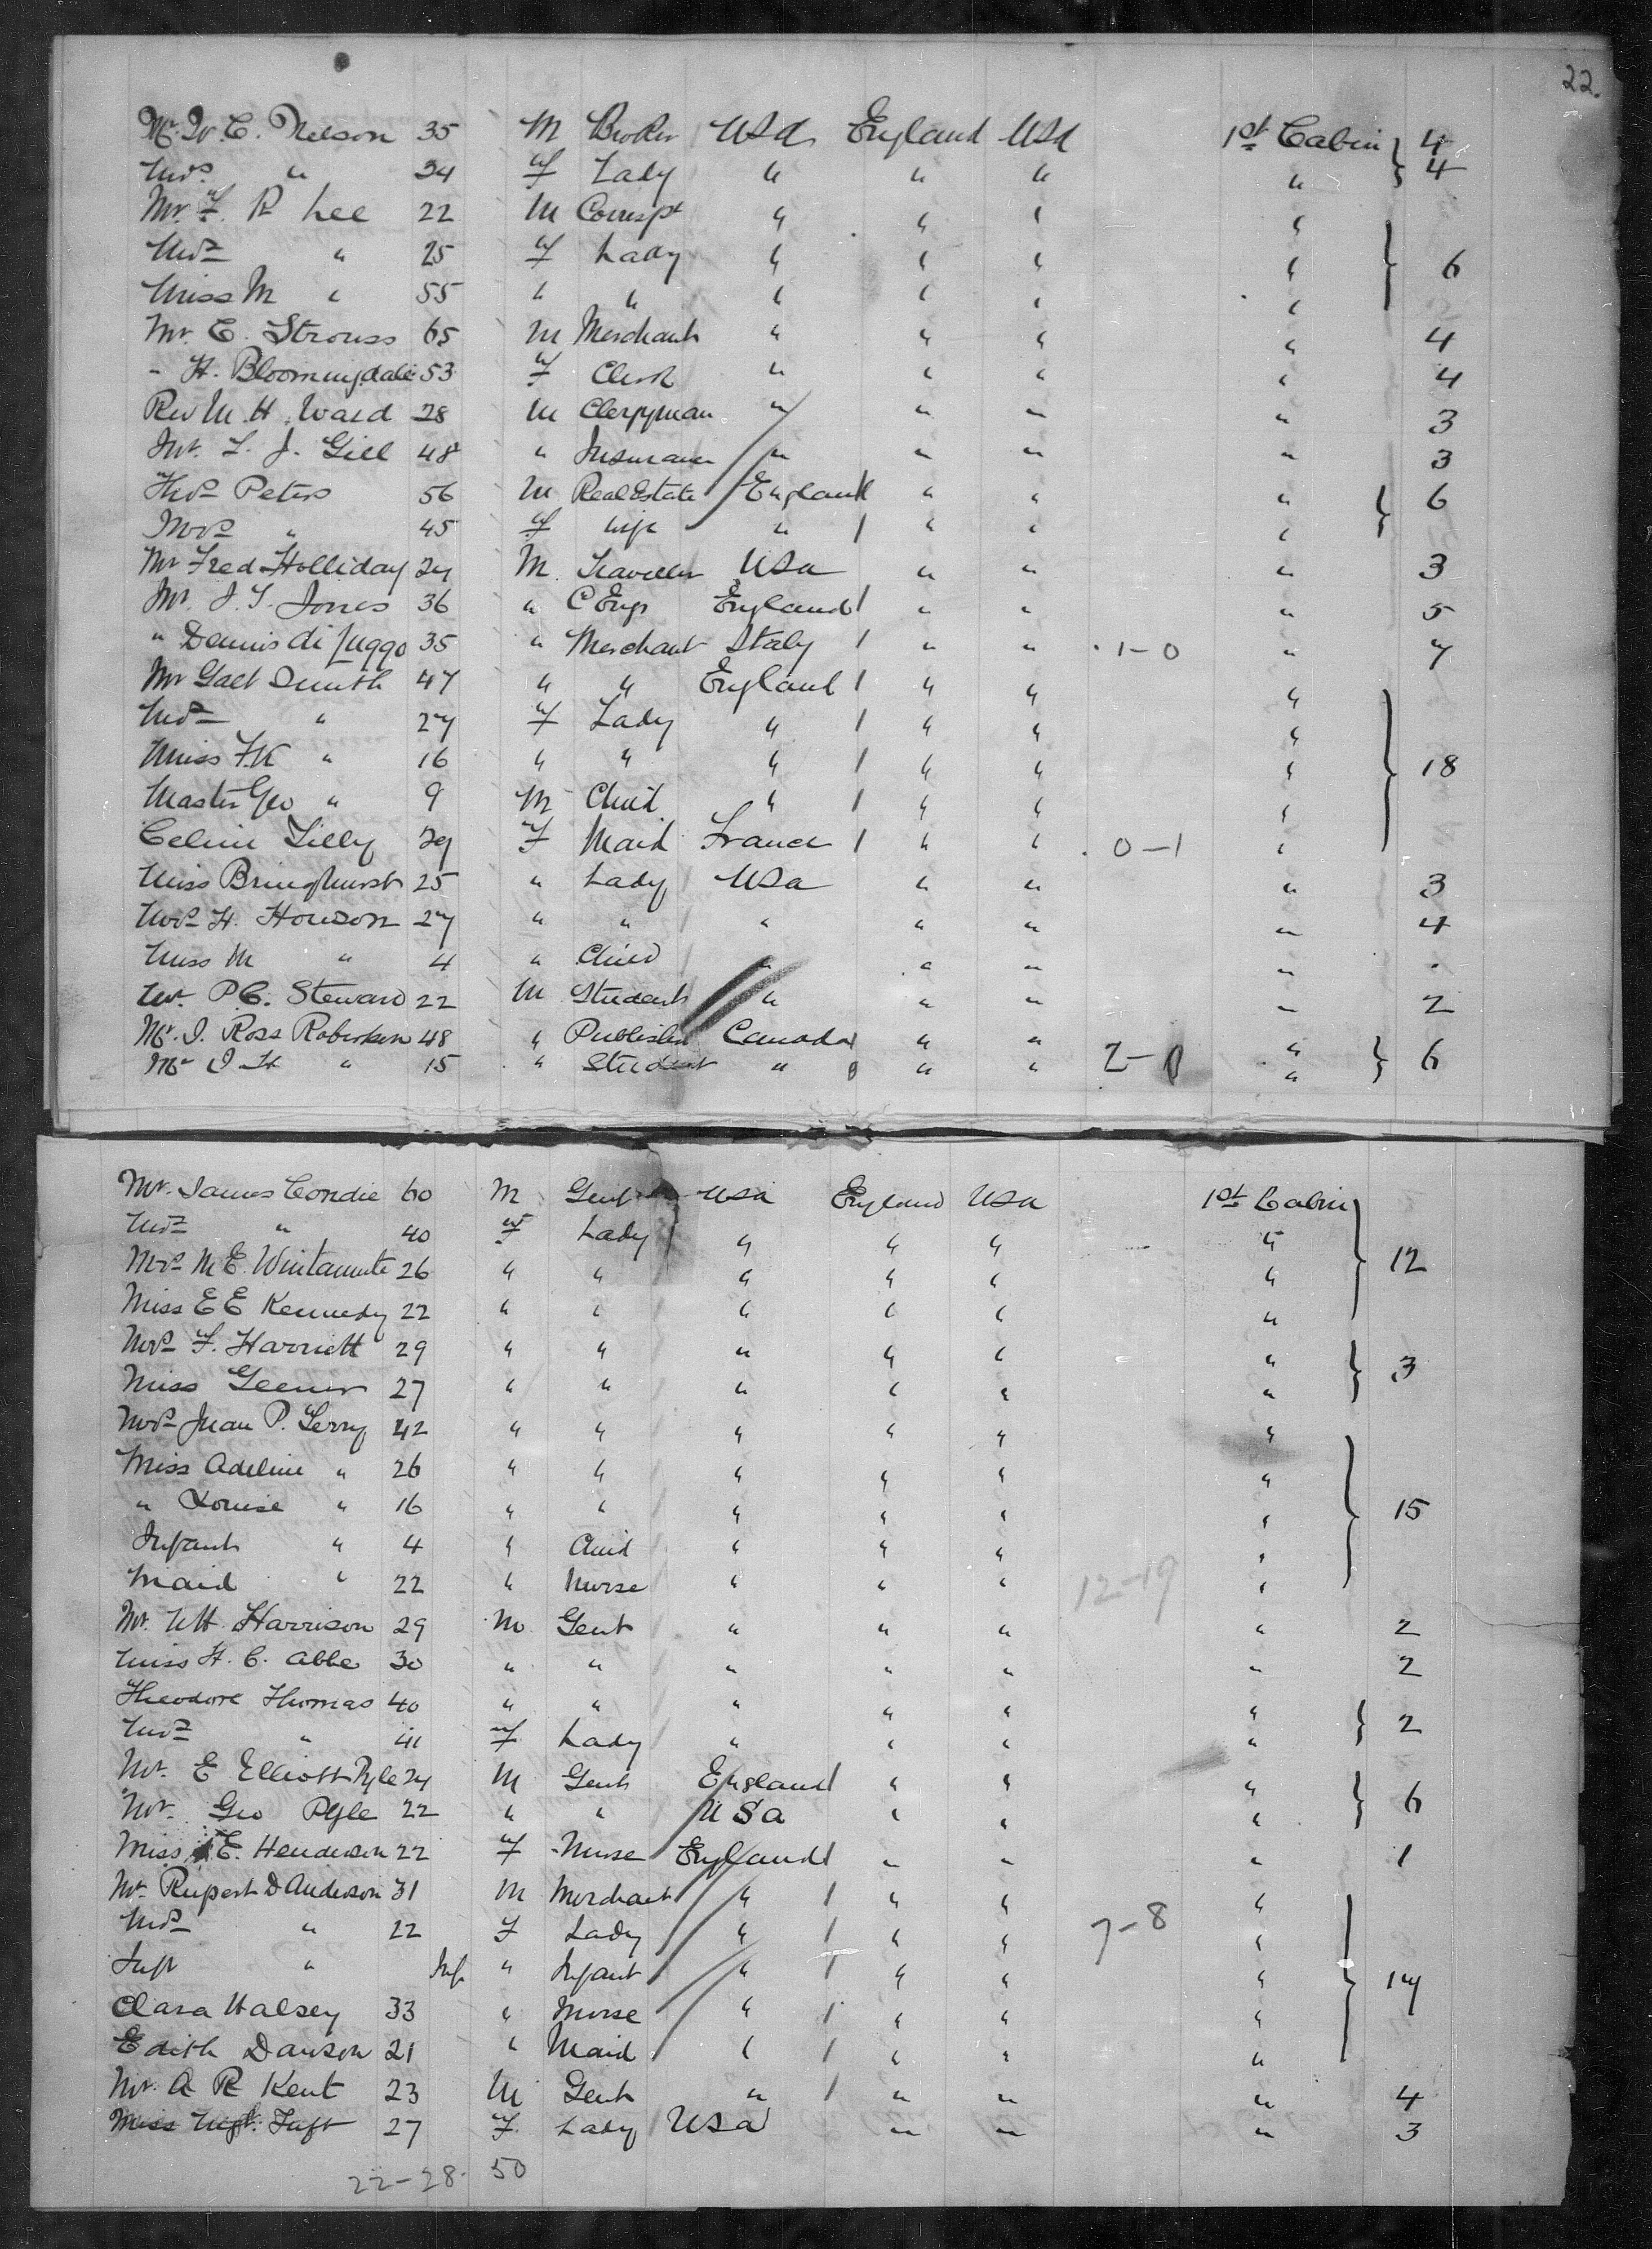 22.
Mr. W. C. Nelson 35 M Broker USA England USA 1st Cabin 4
Mrs " 34 F Lady " " " " 4
Mr. F. R Lee 22 M Corrispt " " " "
Mrs " 25 F Lady " " " " 6
Miss M " 55 " " " " " "
Mr. C. Strouss 65 M Merchant " " " " 4
- H. Bloomingdale 53 F Clerk " " " " 4
Rev M. H. Ward 28 M Clergyman " " " " 3
Mr. L. J. Gill 48 " Insurance " " " " 3
Thos Peters 56 M Real Estate England " " " 6
Mrs " 45 F wife " 1 " " "
Mr Fred Holliday 24 M. Traveller USA " " " 3
Mr. J. T. Jones 36 " C Engr England 1 " " " 5
" Dennis di 35 " Merchant Italy 1 " " 1-0 " 7
Mr Galt Smith 47 " " England 1 " " "
Mrs " 27 F Lady " 1 " " "
Miss F.K " 16 " " " 1 " " " 18
Master Geo " 9 M Child " 1 " " "
Celine Lilly 29 F Maid France 1 " " 0-1 "
Miss Bringhurst 25 " Lady USA " " " 3
Mrs H. Howson 27 " " " " " " 4
Miss M " 4 " Child " " " " .
Mr. P. C. Steward 22 M Student " " " " 2
Mr. J. Ross Robertson 48 " Publisher Canada " " "
Mr J H " 15 " Student " " " 2-0 " 6
Mr. James Condie 60 M Gent USA England USA 1st Cabin
Mrs " 40 F Lady " " " "
Mrs M E. Wintamute 26 " " " " " " 12
Miss E E Kennedy 22 " " " " " "
Mrs F. Harriett 29 " " " " " "
Miss 27 " " " " " " 3
Mrs Juan P. Terry 42 " " " " " "
Miss Adeline " 26 " " " " " "
" Louise " 16 " " " " " " 15
Infant " 4 " Child " " " "
Maid " 22 " Nurse " " " 12-19 "
Mr. Harrison 29 M Gent " " " " 2
Miss H. C. Abbe 30 " " " " " " 2
Theodore Thomas 40 " " " " " "
Mrs " 41 F Lady " " " " 2
Mr. E Elliott Pyle 24 M Gent England 1 " " "
Mr. Geo Pyle 22 " " USA " " " 6
Miss E. Henderson 22 F Nurse England 1 " " " 1
Mr. Rupert D Anderson 31 M Merchant " 1 " " "
Mrs " 22 F Lady " 1 " " 7-8 "
Inft " Inf. " Infant " 1 " " " 17
Clara Halsey 33 " Nurse " 1 " " "
Edith Dawson 21 " Maid " 1 " " "
Mr. A R Kent 23 M Gent " 1 " " " 4
Miss Tuft 27 F Lady USA " " " 3
22-28. 50